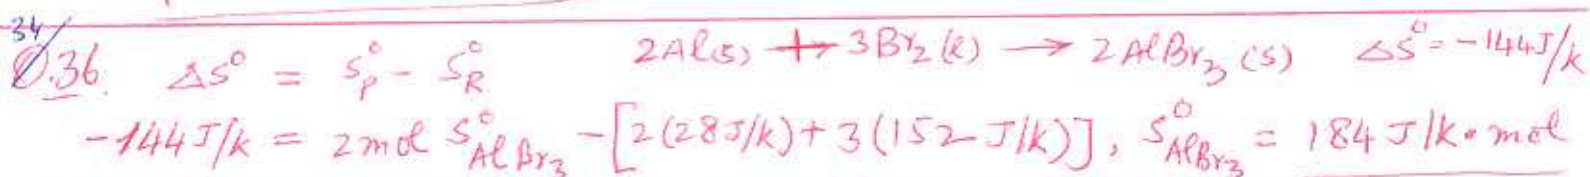 34
Q.36. ΔS° = S°P - S°R 2Al(s) + 3Br2(l) → 2AlBr3(s) ΔS° = -144J/K
-144J/K = 2mol S°AlBr3 - [2(28J/K) + 3(152 J/K)], S°AlBr3 = 184 J/K•mol